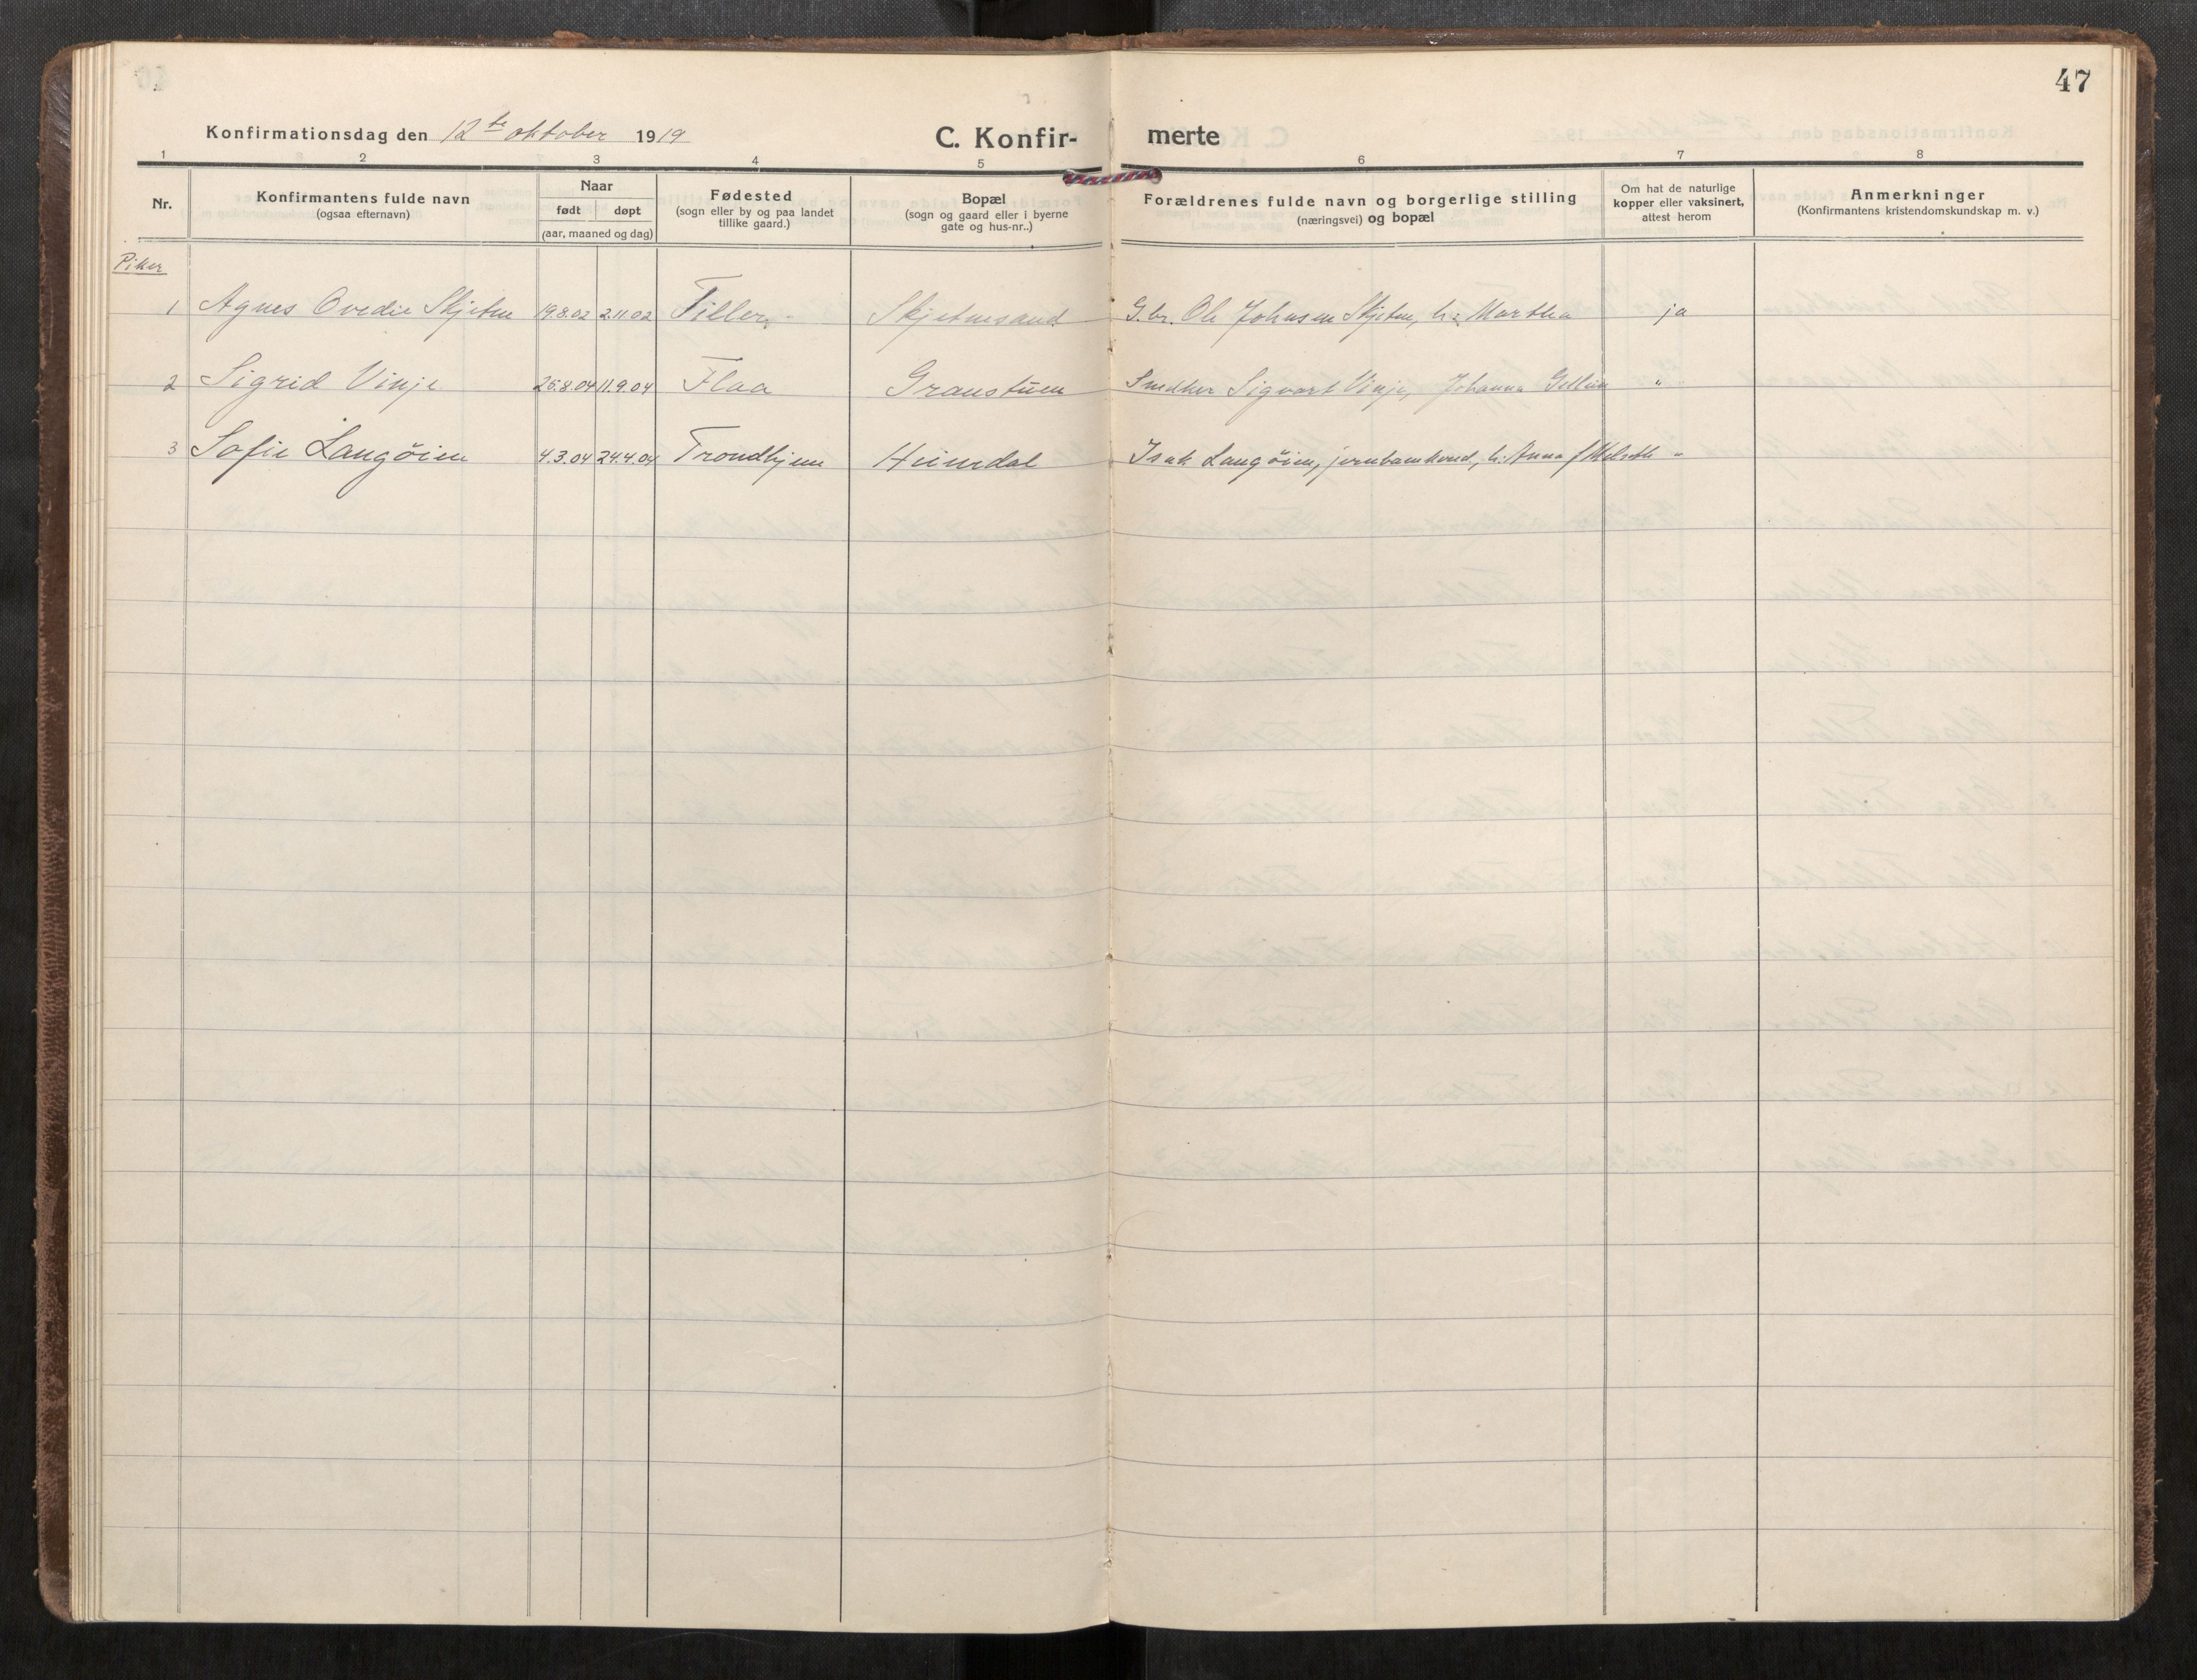 47
Konfirmationsdag den 12te oktober 1919
C. Konfir-
merte
1 2 3 4 5 6 7 8
Nr.
Konfirmantens fulde navn
(ogsaa efternavn)
Naar
født døpt
(aar, maaned og dag)
Fødested
(sogn eller by og paa landet
tillike gaard.)
Bopæl
(sogn og gaard eller i byerne
gate og hus-nr..)
Forældrenes fulde navn og borgerlige stilling
(næringsvei) og bopæl
Om hat de naturlige
kopper eller vaksinert,
attest herom
Anmerkninger
(Konfirmantens kristendomskundskap m. v.)
Piker
1 Agnes Ovedie Skjetne 19.8.02 2.11.02 Tiller Skjetnesand G.br. Ole Johnsen Skjetne, h: Martha ja
2 Sigrid Vinje 25.8.04 11.9.04 Flaa Granstuen Snedker Sigvart Vinje, Johanna "
3 Sofie Langøien 4.3.04 24.4.04 Trondhjem Heimdal Isak Langøien, h: Anna f "